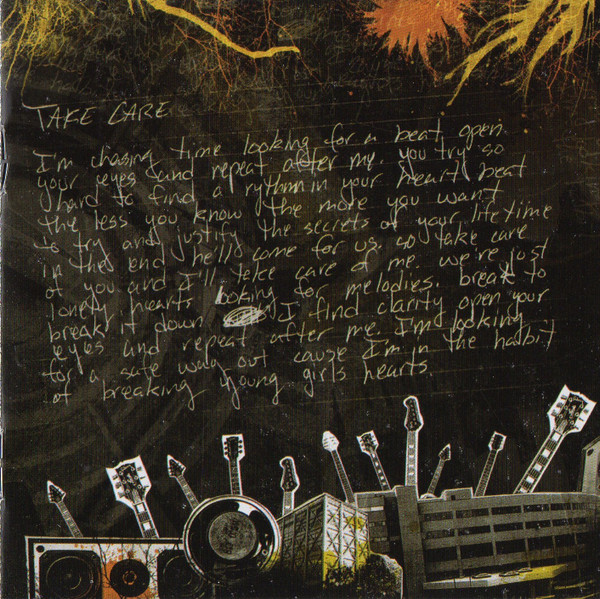 TAKE CARE
I'm chasing time looking for a beat open
your eyes and repeat after my. you try so
hard to find a rythm in your heart beat
the less you know the more you want
to try and justify the secrets of your lifetime
in the end he'll come for us, so take care
of you and I'll take care of me. we're just
lonely hearts looking for melodies. break to
break it down I find clarity open your
eyes and repeat after me. I'm looking
for a safe way out cause I'm in the habit
of breaking young girls hearts.